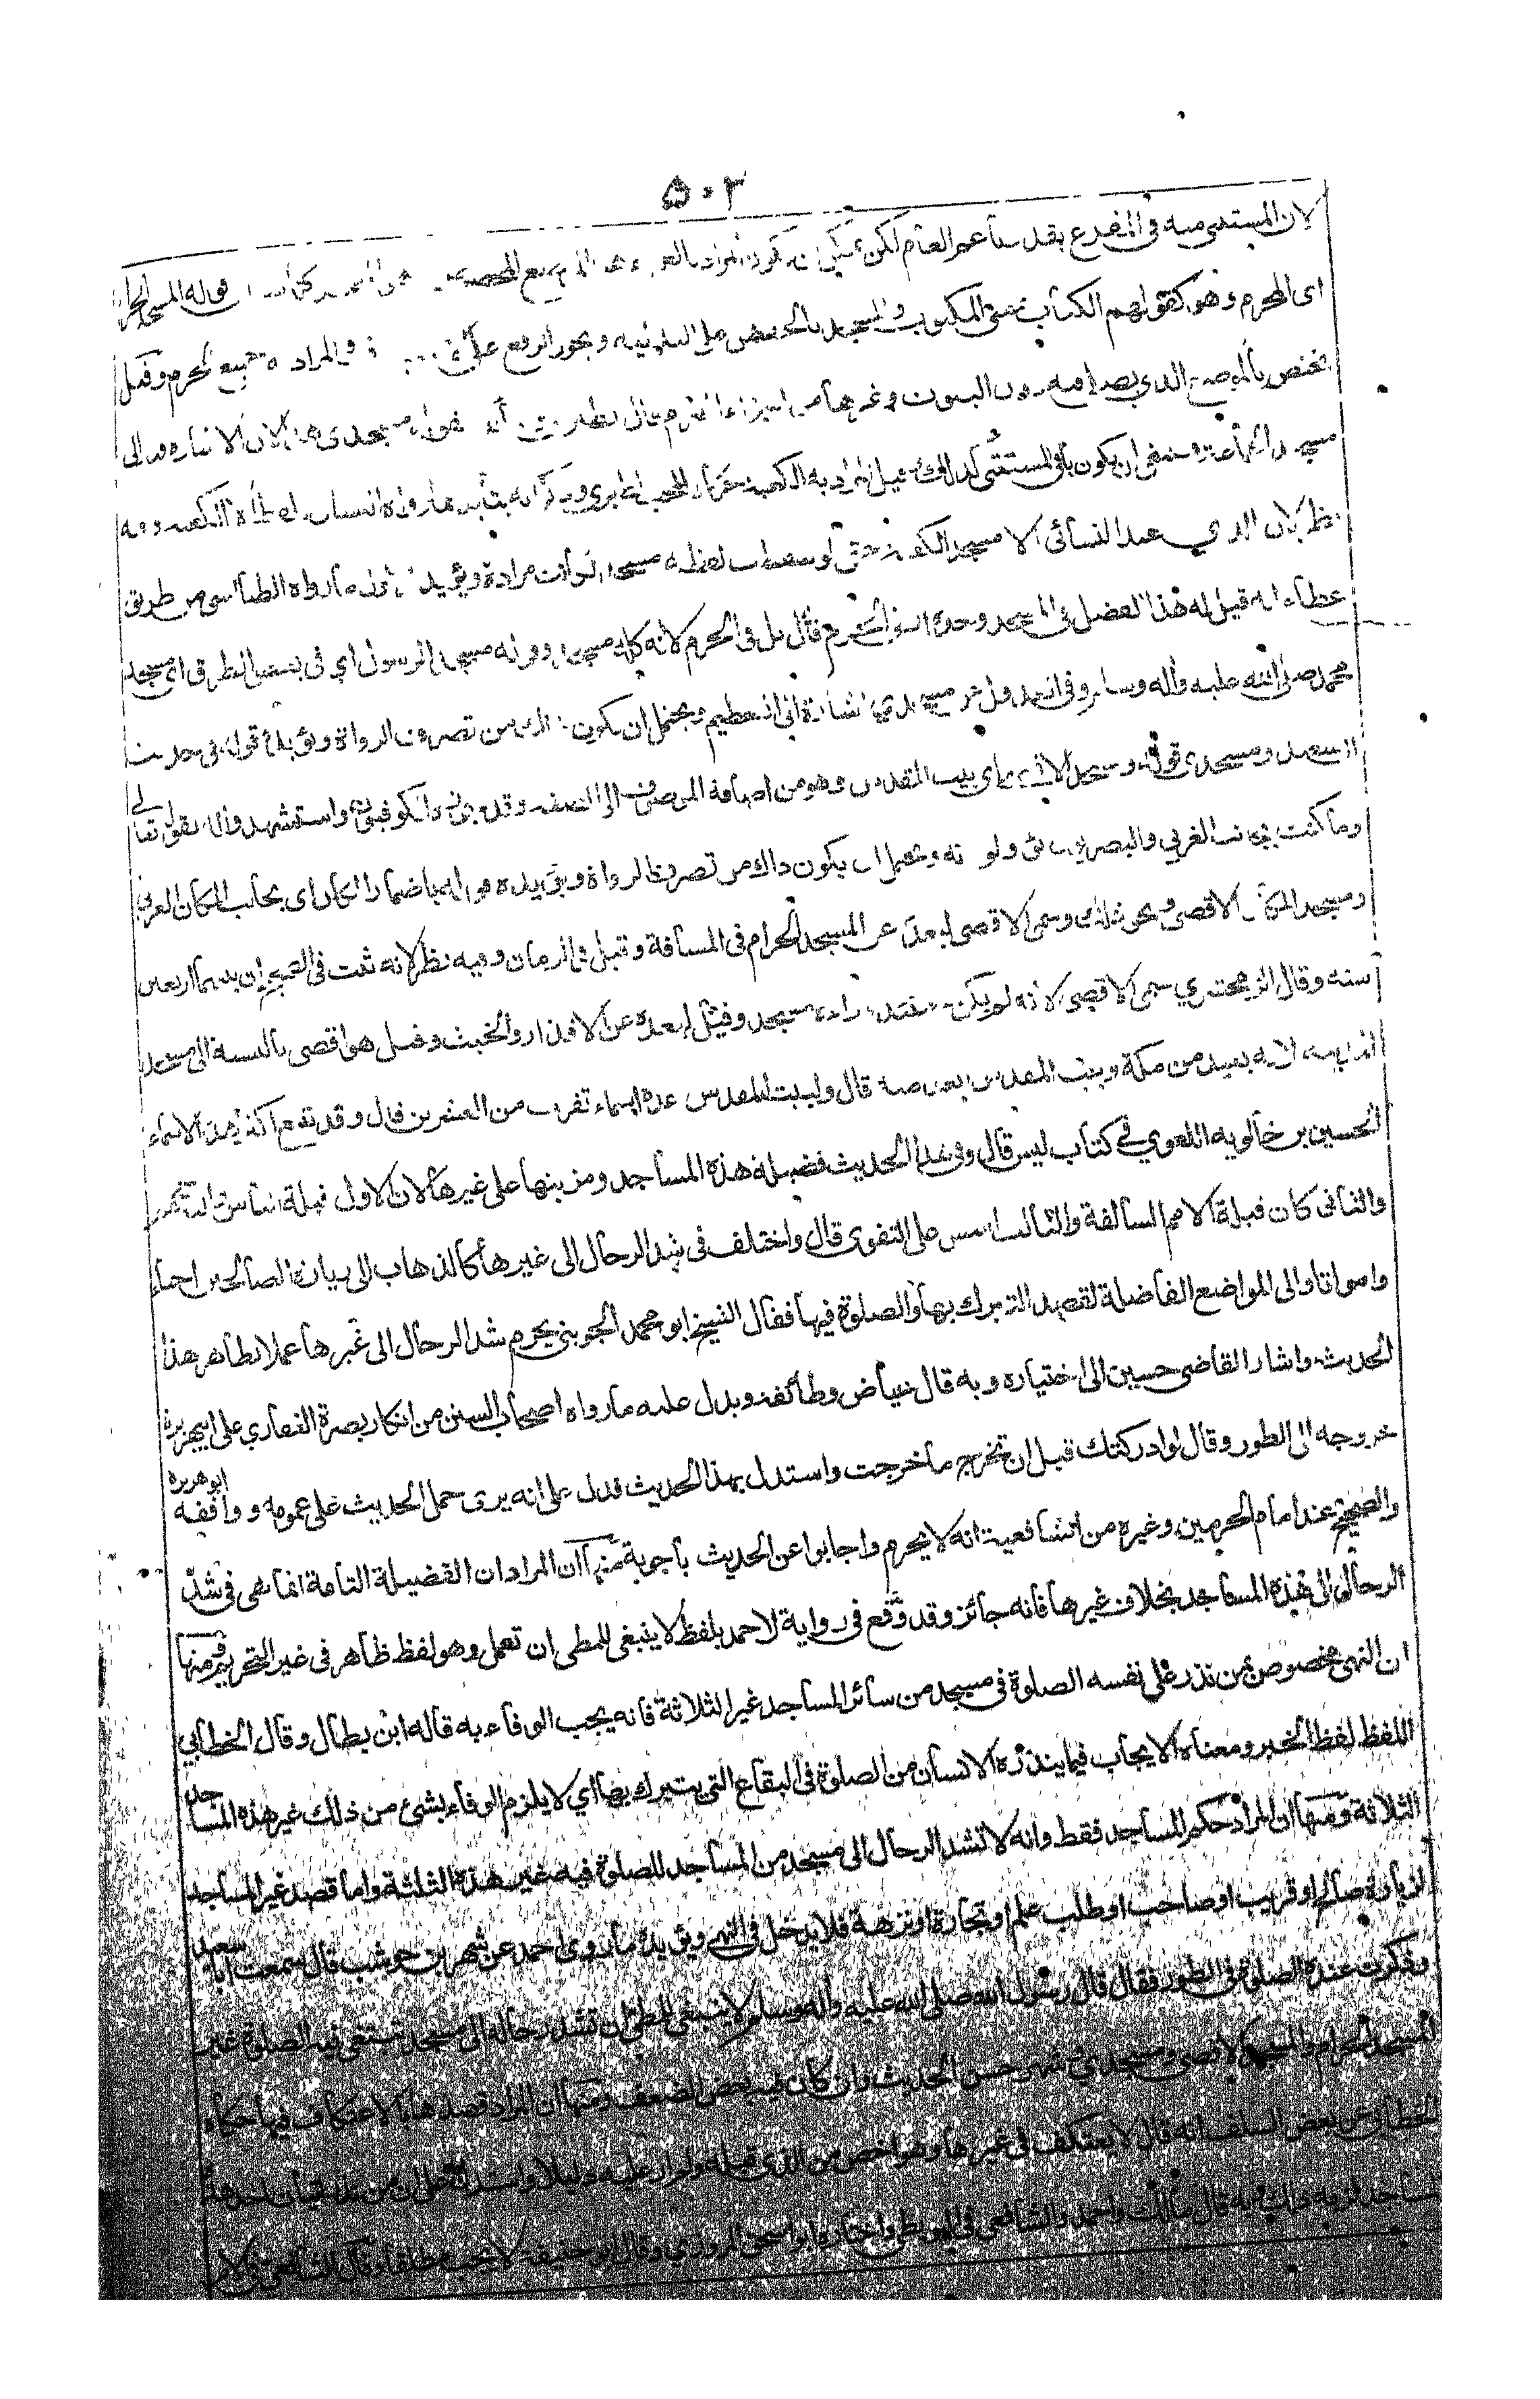 ۵۰۲
لان المستثنى منه في المفرغ يقدر باعم العام لكن يمكن ان يكون المراد بالعموم هنا قوله المسجد الحرام
اى المحرم وهو كقولهم الكتاب بمعنى المكتوب والمسجد بالخفض على البدلية ويجوز الرفع على والمراد به جميع الحرم وقيل
يختص بالموضع الذي يصلى فيه دون البيوت وغيرها من اجزاء الحرم قال مسجدى هذا لان الاشارة فيه الى
مسجد الجماعة فينبغى ان يكون المستثنى كذلك وقيل المراد به الكعبة حكاه المحب الطبري وذكر انه يتأيد بما رواه النسائى الا الكعبة وفيه
نظر لان الذي عند النسائى الا مسجد الكعبة حتى لو سقطت لفظة مسجد لكانت مرادة ويؤيد الاول ما رواه الطيالسى من طريق
عطاء انه قيل له هذا الفضل فى المسجد وحده او فى الحرم قال بل فى الحرم لانه كله مسجد وقوله مسجد الرسول اي فى بعض الطرق اى مسجد
محمد صلى الله عليه وآله وسلم وفى العدول عن مسجدي اشارة الى التعظيم ويحتمل ان يكون ذلك من تصرف الرواة ويؤيده قوله فى حديث
ابى سعيد ومسجدى قوله ومسجد الاقصى اى بيت المقدس وهو من اضافة الموصوف الى الصفة وقد جوزه الكوفيون واستشهدوا له بقوله تعالى
وما كنت بجانب الغربي والبصريون يؤولونه ويحتمل ان يكون ذلك من تصرف الرواة ويؤيده قوله باضمار المكان اى بجانب المكان الغربى
ومسجد المكان الاقصى ونحو ذلك وسمى الاقصى لبعده عن المسجد الحرام فى المسافة وقيل فى الزمان وفيه نظر لانه ثبت فى الصحيح ان بينهما اربعين
سنة وقال الزمخشري سمى الاقصى لانه لم يكن وراءه مسجد وقيل لبعده عن الاقذار والخبث وقيل هو اقصى بالنسبة الى مسجد
المدينة لانه بعيد من مكة وبيت المقدس ابعد منه قال ولبيت المقدس عدة اسماء تقرب من العشرين قال وقد تتبع اكثر هذه الاسماء
الحسين بن خالويه اللغوي فى كتاب ليس قال وفى هذا الحديث فضيلة هذه المساجد ومزيتها على غيرها لان الاول قبلة الناس واليه حجهم
والثانى كان قبلة الامم السالفة والثالث اسس على التقوى قال واختلف فى شد الرحال الى غيرها كالذهاب الى زيارة الصالحين احياء
وامواتا والى المواضع الفاضلة لقصد التبرك بها والصلوة فيها فقال الشيخ ابو محمد الجوينى يحرم شد الرحال الى غيرها عملا بظاهر هذا
الحديث واشار القاضى حسين الى اختياره وبه قال عياض وطائفة ويدل عليه ما رواه اصحاب السنن من انكار بصرة الغفاري على ابى هريرة
خروجه الى الطور وقال لو ادركتك قبل ان تخرج ما خرجت واستدل بهذا الحديث فدل على انه يرى حمل الحديث على عمومه ووافقه ابو هريرة
والصحيح عند امام الحرمين وغيره من الشافعية انه لا يحرم واجابوا عن الحديث باجوبة منها ان المراد ان الفضيلة التامة انما هى فى شد
الرحال الى هذه المساجد بخلاف غيرها فانه جائز وقد وقع فى رواية لاحمد بلفظ لا ينبغى للمطى ان تعمل وهو لفظ ظاهر فى غير التحريم ومنها
ان النهى مخصوص بمن نذر على نفسه الصلوة فى مسجد من سائر المساجد غير الثلاثة فانه يجب الوفاء به قاله ابن بطال وقال الخطابي
اللفظ لفظ الخبر ومعناه الايجاب فيما ينذره الانسان من الصلوة فى البقاع التى يتبرك بها اي لا يلزم الوفاء بشئ من ذلك غير هذه المساجد
الثلاثة ومنها ان المراد حكم المساجد فقط وانه لا تشد الرحال الى مسجد من المساجد للصلوة فيه غير هذه الثلثة واما قصد غير المساجد
لزيارة صالح او قريب او صاحب او طلب علم او تجارة او نزهة فلا يدخل فى النهى ويؤيده ما روى احمد عن شهر بن حوشب قال سمعت ابا سعيد
وذكرت عنده الصلوة فى الطور فقال قال رسول الله صلى الله عليه وآله وسلم لا ينبغى للمطى ان تشد رحاله الى مسجد تبتغى فيه الصلوة غير
المسجد الحرام والمسجد الاقصى ومسجدي وشهر حسن الحديث وان كان فيه بعض الضعف ومنها ان المراد قصدها بالاعتكاف فيها حكاه
الخطابى عن بعض السلف انه قال لا يعتكف فى غيرها وهو اخص من الذى قبله ولم ار عليه دليلا واستدل به على ان من نذر اتيان احد هذه
المساجد لزمه ذلك وبه قال مالك واحمد والشافعى فى البويطى واختاره ابو اسحق المروزي وقال ابو حنيفة لا يجب مطلقا وقال الشافعى فى الام